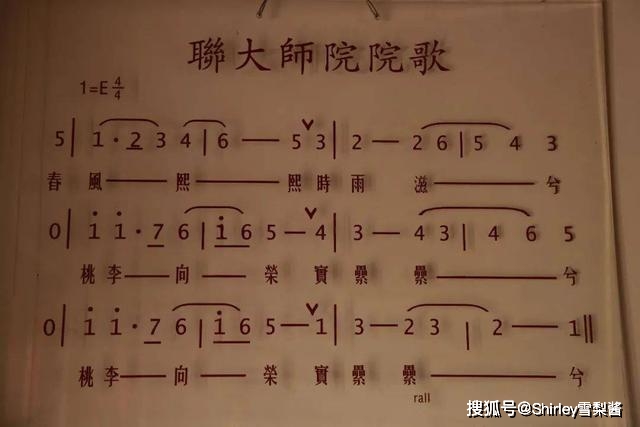 聯大師院院歌
1=E 4/4
5| 1·2 3 4|6 — 5 3|2 — 2 6|5 4 3
春 風—— 熙—— 熙 時 雨 滋—— 兮
0| 1 1·7 6|1 6 5 — 4|3 — 4 3|4 6 5
桃 李—— 向—— 榮 實 纍 纍—— 兮
0| 1 1·7 6|1 6 5 — 1|3 — 2 3|2 — 1‖
桃 李—— 向—— 榮 實 纍 纍—— 兮
rall
搜狐号@Shirley雪梨酱